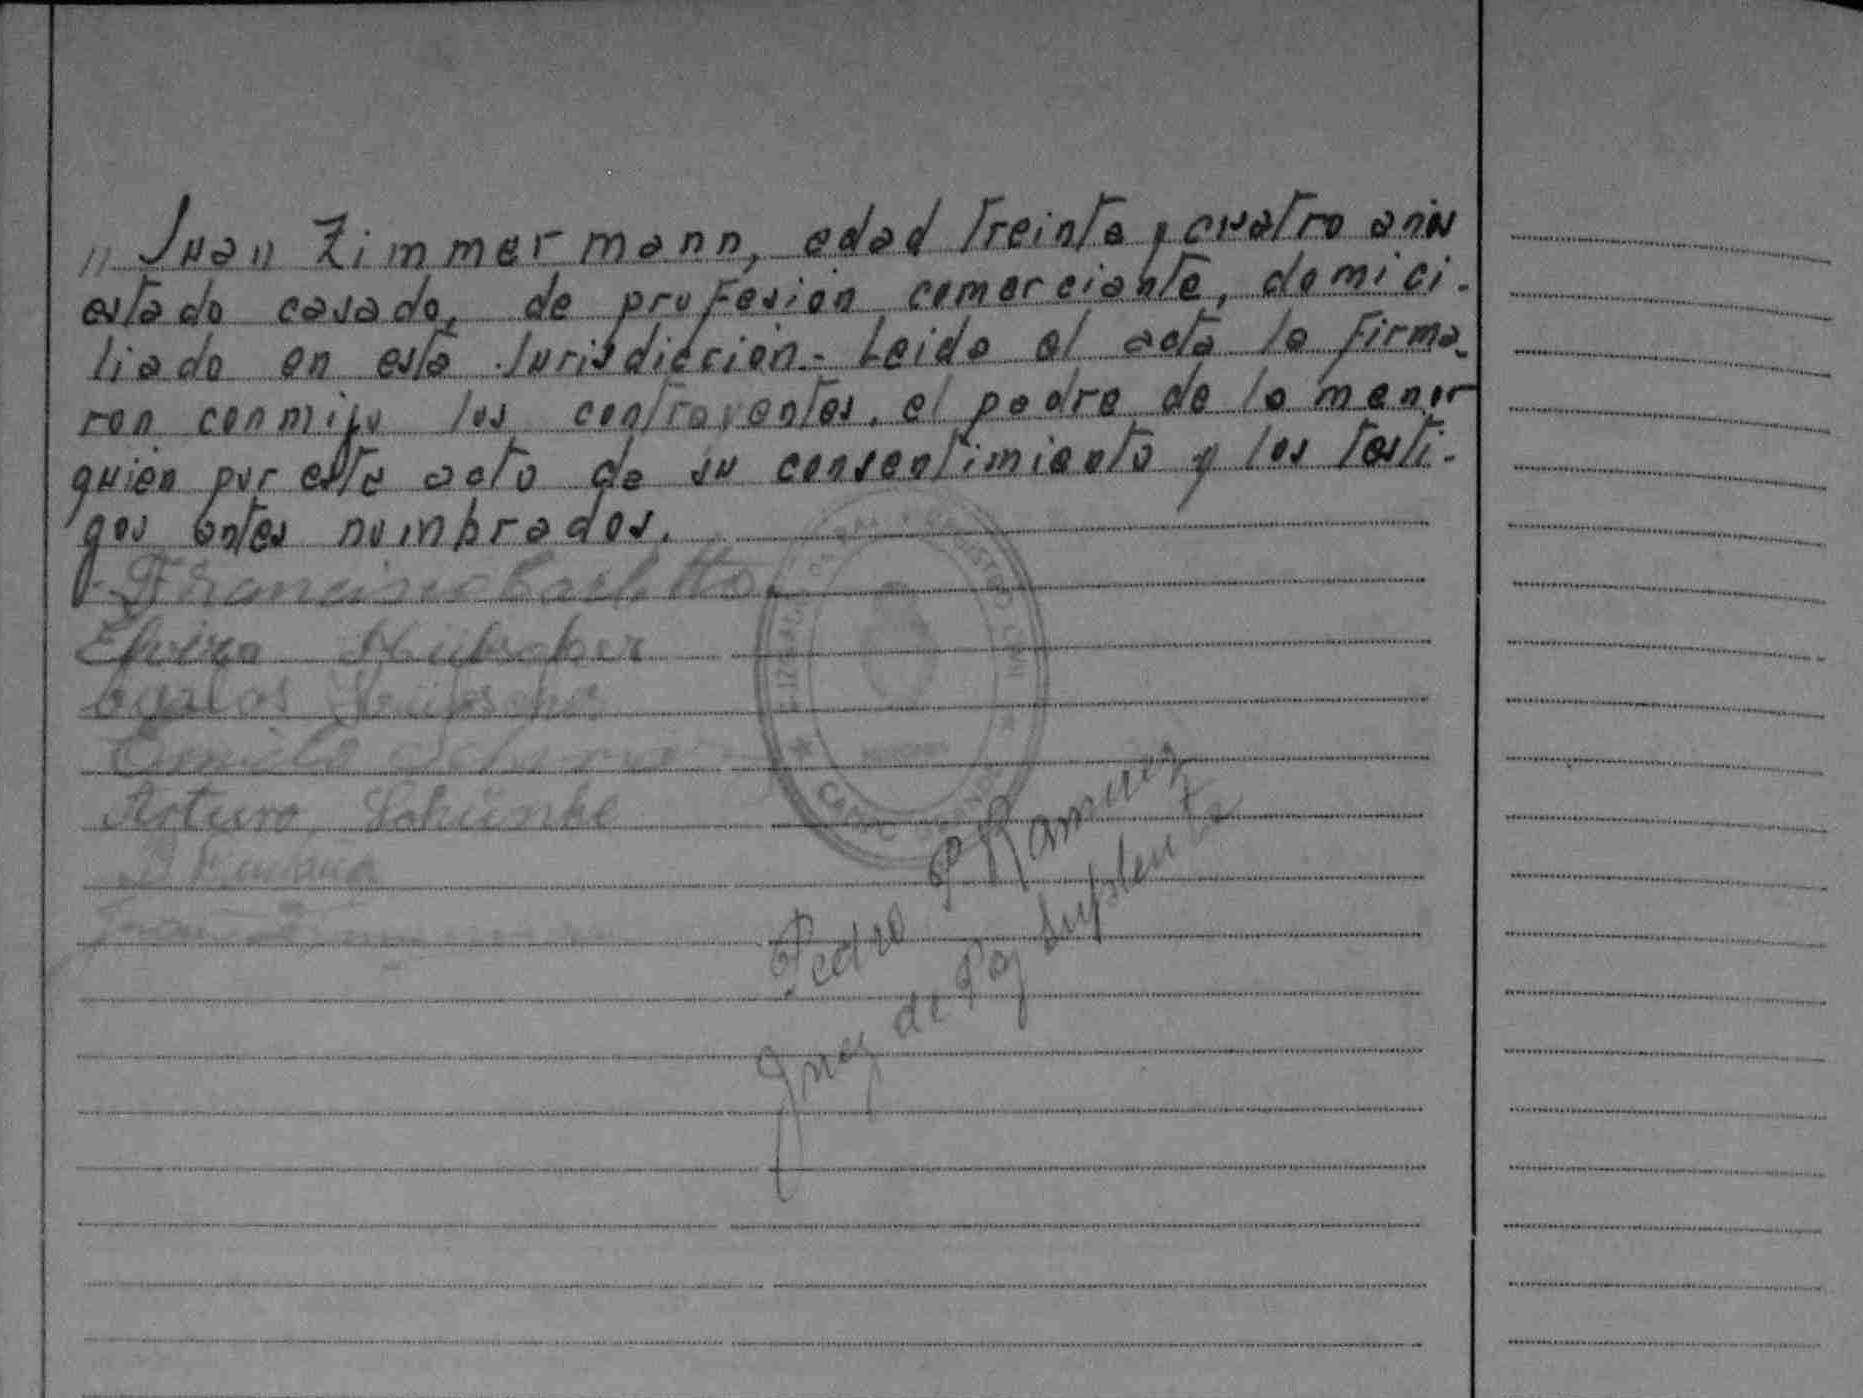 " Juan Zimmermann, edad treinta y cuatro años
estado casado, de profesion comerciante, domici-
liado en esta Jurisdiccion.- Leida el acta la firma-
ron conmigo los contrayentes, el padre de la menor
quien por este acto da su consentimiento y los testi-
gos antes nombrados.
Francisco
Elvira Hübscher
Carlos Hübscher
Arturo Schünke
Juan Zimmermann
Pedro P Ramirez
Juez de Paz Suplente